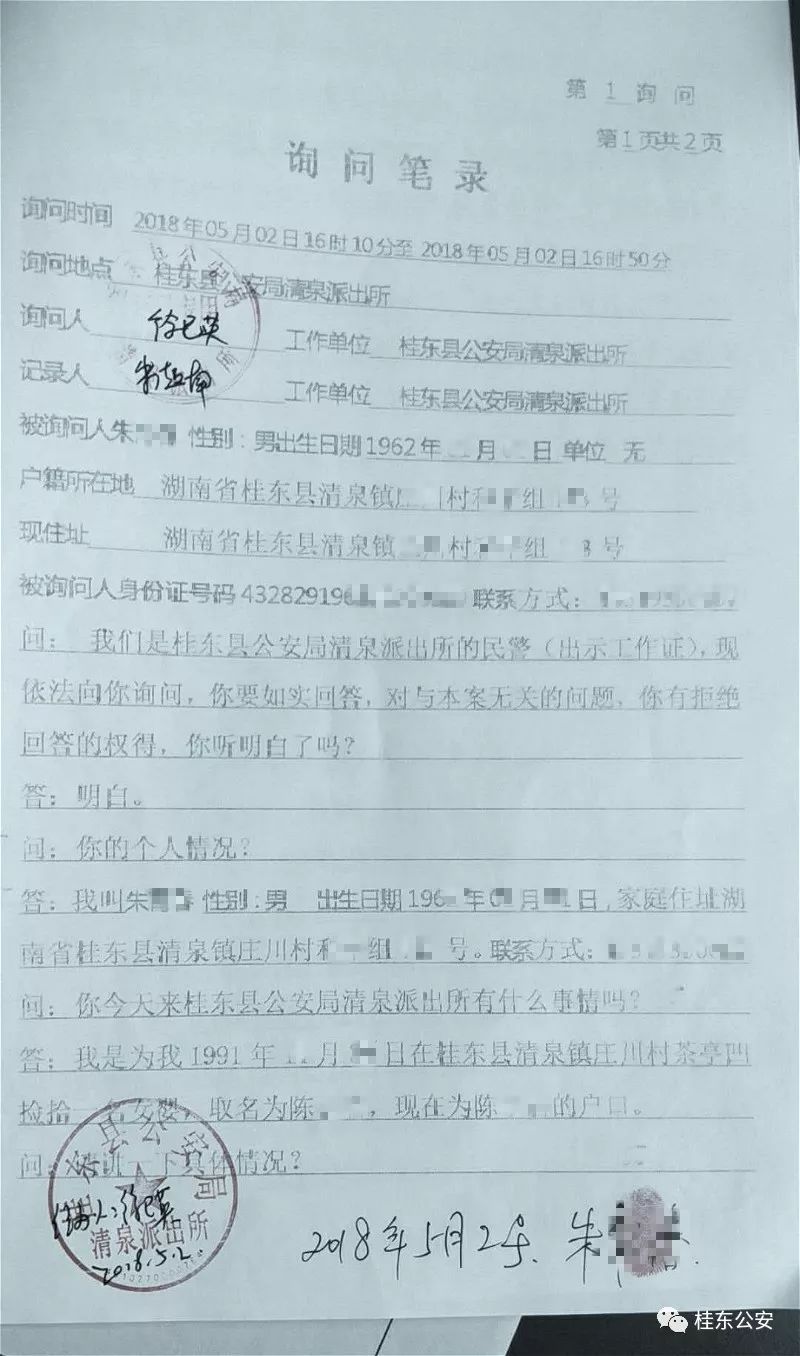 第 1 询 问
第1页共2页
询 问 笔 录
询问时间 2018年05月02日16时10分至 2018年05月02日16时50分
询问地点 桂东县公安局清泉派出所
询问人 工作单位 桂东县公安局清泉派出所
记录人 工作单位 桂东县公安局清泉派出所
被询问人朱 性别：男出生日期1962年 月 日 单位 无
户籍所在地 湖南省桂东县清泉镇 村和 组 号
现住址 湖南省桂东县清泉镇 村 组 号
被询问人身份证号码432829196 联系方式：
问：我们是桂东县公安局清泉派出所的民警（出示工作证），现
依法向你询问，你要如实回答，对与本案无关的问题，你有拒绝
回答的权得，你听明白了吗？
答：明白。
问：你的个人情况？
答：我叫朱 性别：男 出生日期196 年 月 日，家庭住址湖
南省桂东县清泉镇庄川村和 组 号。联系方式：
问：你今天来桂东县公安局清泉派出所有什么事情吗？
答：我是为我1991年 月 日在桂东县清泉镇庄川村茶亭凹
捡拾一名女婴，取名为陈 ，现在为陈 的户口。
问：请讲一下具体情况？
清泉派出所
2018.5.2.
2018年5月2号. 朱
桂东公安